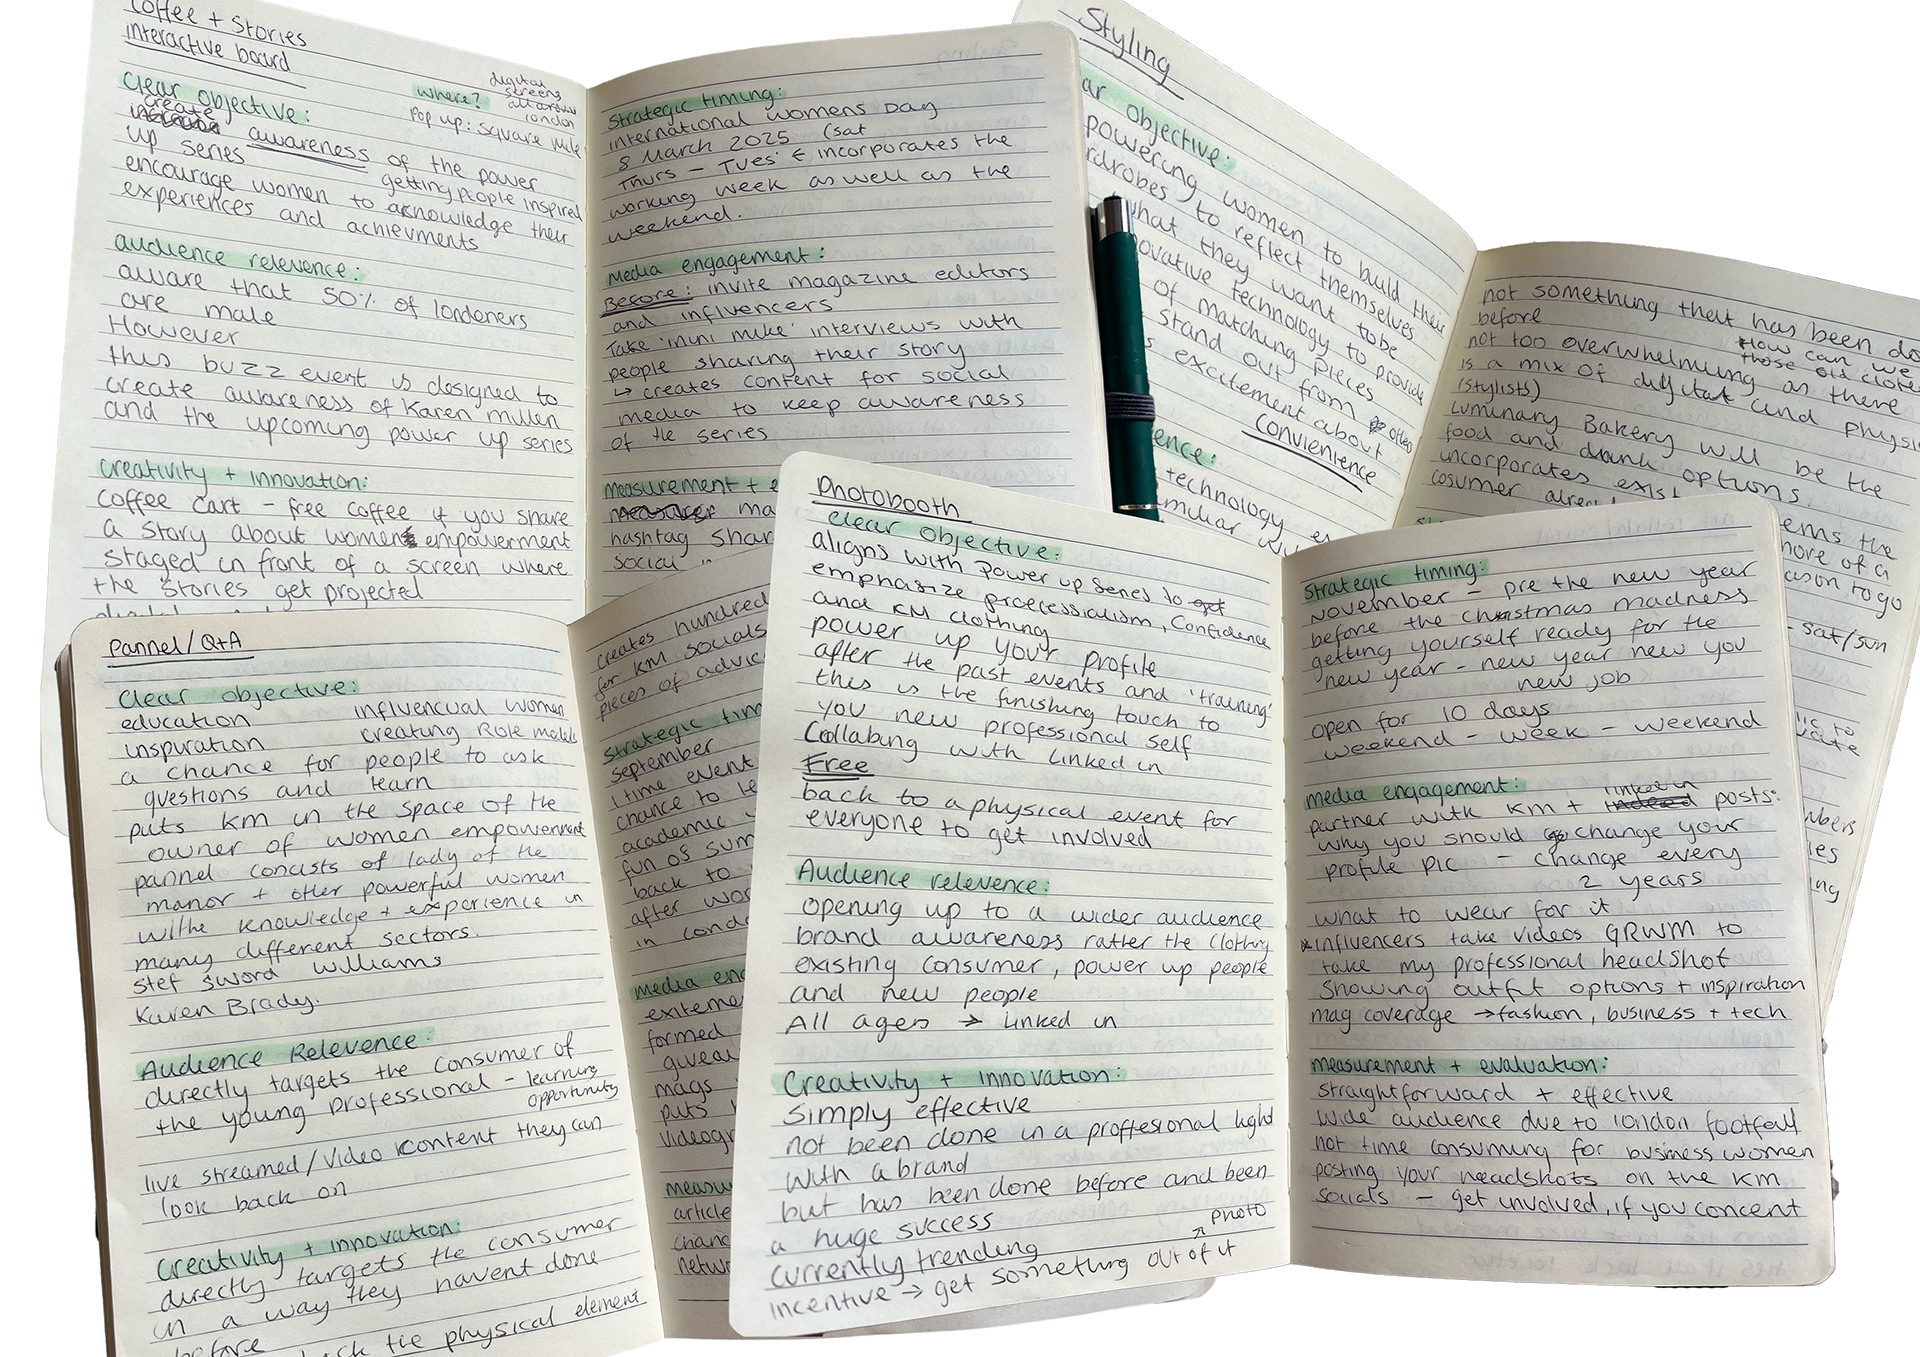 Coffee + Stories
interactive board
clear objective:
where? digital
screens
all around
london
Pop up: Square Mile
create
awareness of the power
up series
getting people inspired
encourage women to acknowledge their
experiences and achievments
audience relevence:
aware that 50% of londoners
are male
However
this buzz event is designed to
create awareness of Karen millen
and the upcoming power up series
creativity + innovation:
coffee cart - free coffee if you share
a story about women empowerment
staged in front of a screen where
the stories get projected
strategic timing:
international womens Day
8 March 2025 (sat
Thurs - Tues ← incorporates the
working week as well as the
weekend.
media engagement:
Before: invite magazine editors
and influencers
Take 'mini mike' interviews with
people sharing their story
↳ creates content for social
media to keep awareness
of the series
measurement + e
ma
hashtag shar
social
Styling
ar objective:
powering women to build their
rdrobes to reflect themselves
what they want to be
ovative technology to provide
of matching pieces
stand out from other
s excitement about
convienience
ence:
technology
miliar
not something that has been do
before
How can we
those old clothes
not too overwhelming as there
is a mix of digital and physi
(stylists)
Luminary Bakery will be the
food and drink options.
incorporates exist
cosumer alre
ems the
more of a
ason to go
- sat/sun
Pannel/Q+A
Clear objective:
education influencual women
inspiration creating Role models
a chance for people to ask
questions and learn
puts KM in the space of the
owner of women empowerment
pannel concists of lady of the
manor + other powerful women
withe knowledge + experience in
many different sectors.
stef sword williams
Karen Brady.
Audience Relevence:
directly targets the consumer of
the young professional - learning
opportunity
live streamed/video content they can
look back on
Creativity + innovation:
directly targets the consumer
in a way they havent done
before
back the physical element
creates hundred
for KM socials
pieces of advic
strategic tim
september
1 time event
chance to le
academic
fun of sum
back to
after wor
in londo
media eng
exiteme
formed
giveaw
mags
puts
videogr
measu
article
chanc
netwo
Photobooth
clear objective:
aligns with Power up series to get
emphasize proffessialism, Confidence
and KM clothing
power up your profile
after the past events and 'training'
this is the finishing touch to
you new professional self
Collabing with Linked in
Free
back to a physical event for
everyone to get involved
Audience relevence:
opening up to a wider audience
brand awareness rather the clothing
existing consumer, power up people
and new people
All ages → Linked in
Creativity + innovation:
Simply effective
not been done in a proffesional light
with a brand
but has been done before and been
a huge success
currently trending
photo
incentive → get something out of it
strategic timing:
november - pre the new year
before the christmas madness
getting yourself ready for the
new year - new year new you
new job
open for 10 days
weekend - week - weekend
media engagement:
linked in
partner with KM + indeed posts:
why you should change your
profile pic - change every
2 years
what to wear for it
*influencers take videos GRWM to
take my professional headshot
showing outfit options + inspiration
mag coverage → fashion, business + tech
measurement + evaluation:
straightforward + effective
wide audience due to london footfall
not time consuming for business women
posting your headshots on the KM
socials - get involved, if you concent